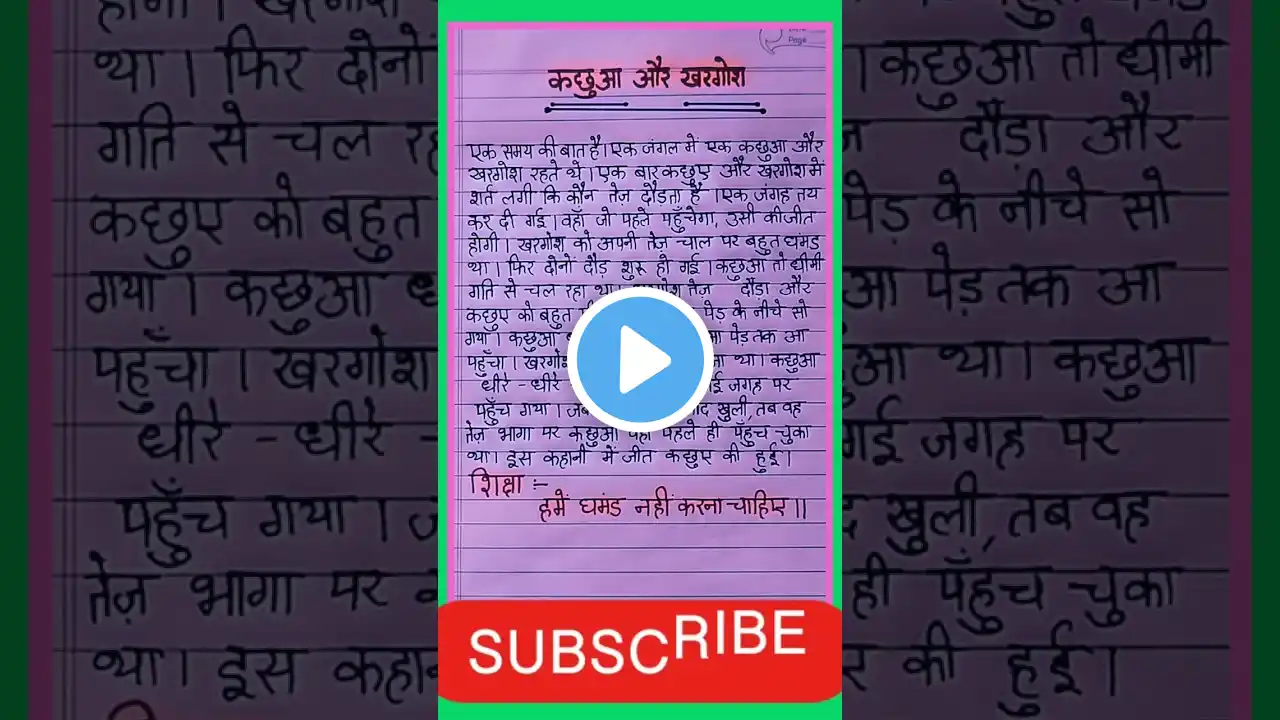 Page
कछुआ और खरगोश
एक समय की बात है। एक जंगल में एक कछुआ और
खरगोश रहते थे। एक बार कछुए और खरगोश में
शर्त लगी कि कौन तेज़ दौड़ता है। एक जंगह तय
कर दी गई। वहाँ जो पहले पहुँचेगा, उसी की जीत
होगी। खरगोश को अपनी तेज़ चाल पर बहुत घंमड
था। फिर दोनों दौड़ शुरू हो गई। कछुआ तो धीमी
गति से चल रहा था। खरगोश तेज़ दौड़ा और
कछुए को बहुत पेड़ के नीचे सो
गया। कछुआ पेड़ तक आ
पहुँचा। खरगोश था। कछुआ
धीरे - धीरे जगह पर
पहुँच गया। खुली, तब वह
तेज़ भागा पर कछुआ वहाँ पहले ही पहुँच चुका
था। इस कहानी में जीत कछुए की हुई।
शिक्षा :-
हमें घमंड नहीं करना चाहिए।।
SUBSCRIBE